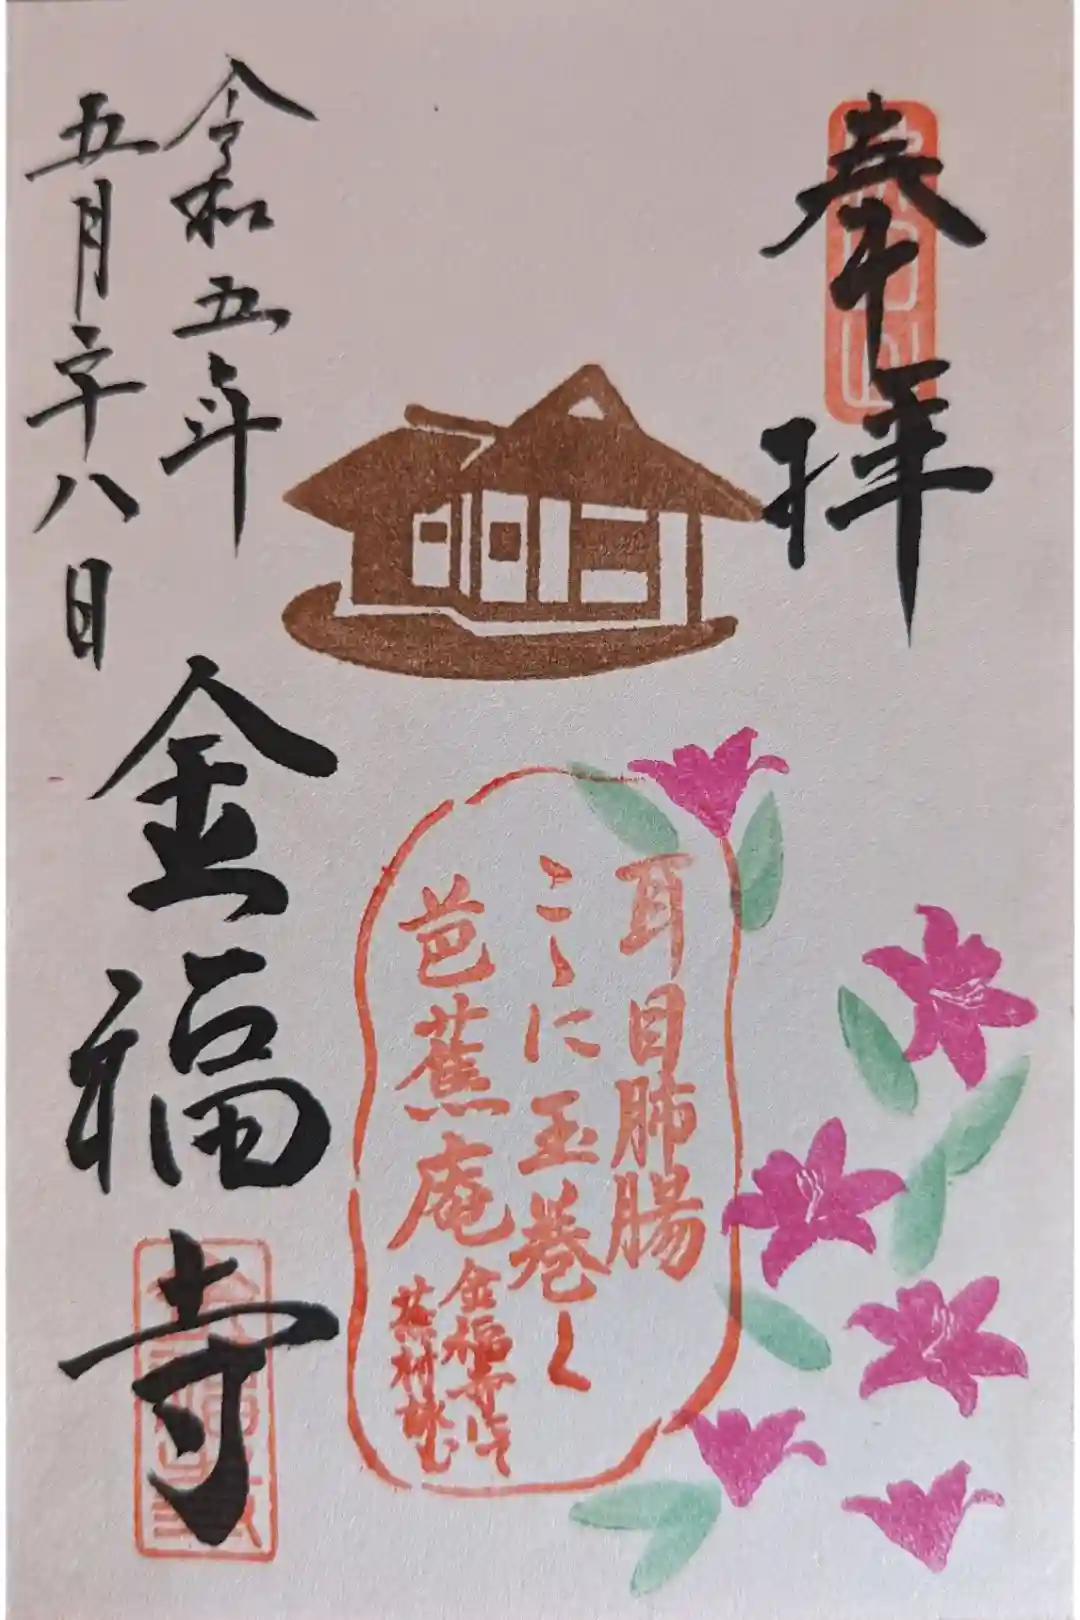 奉拝
耳目肺腸
こゝに玉巻く
芭蕉庵
金福寺にて
蕪村詠む
令和五年
五月二十八日
金福寺